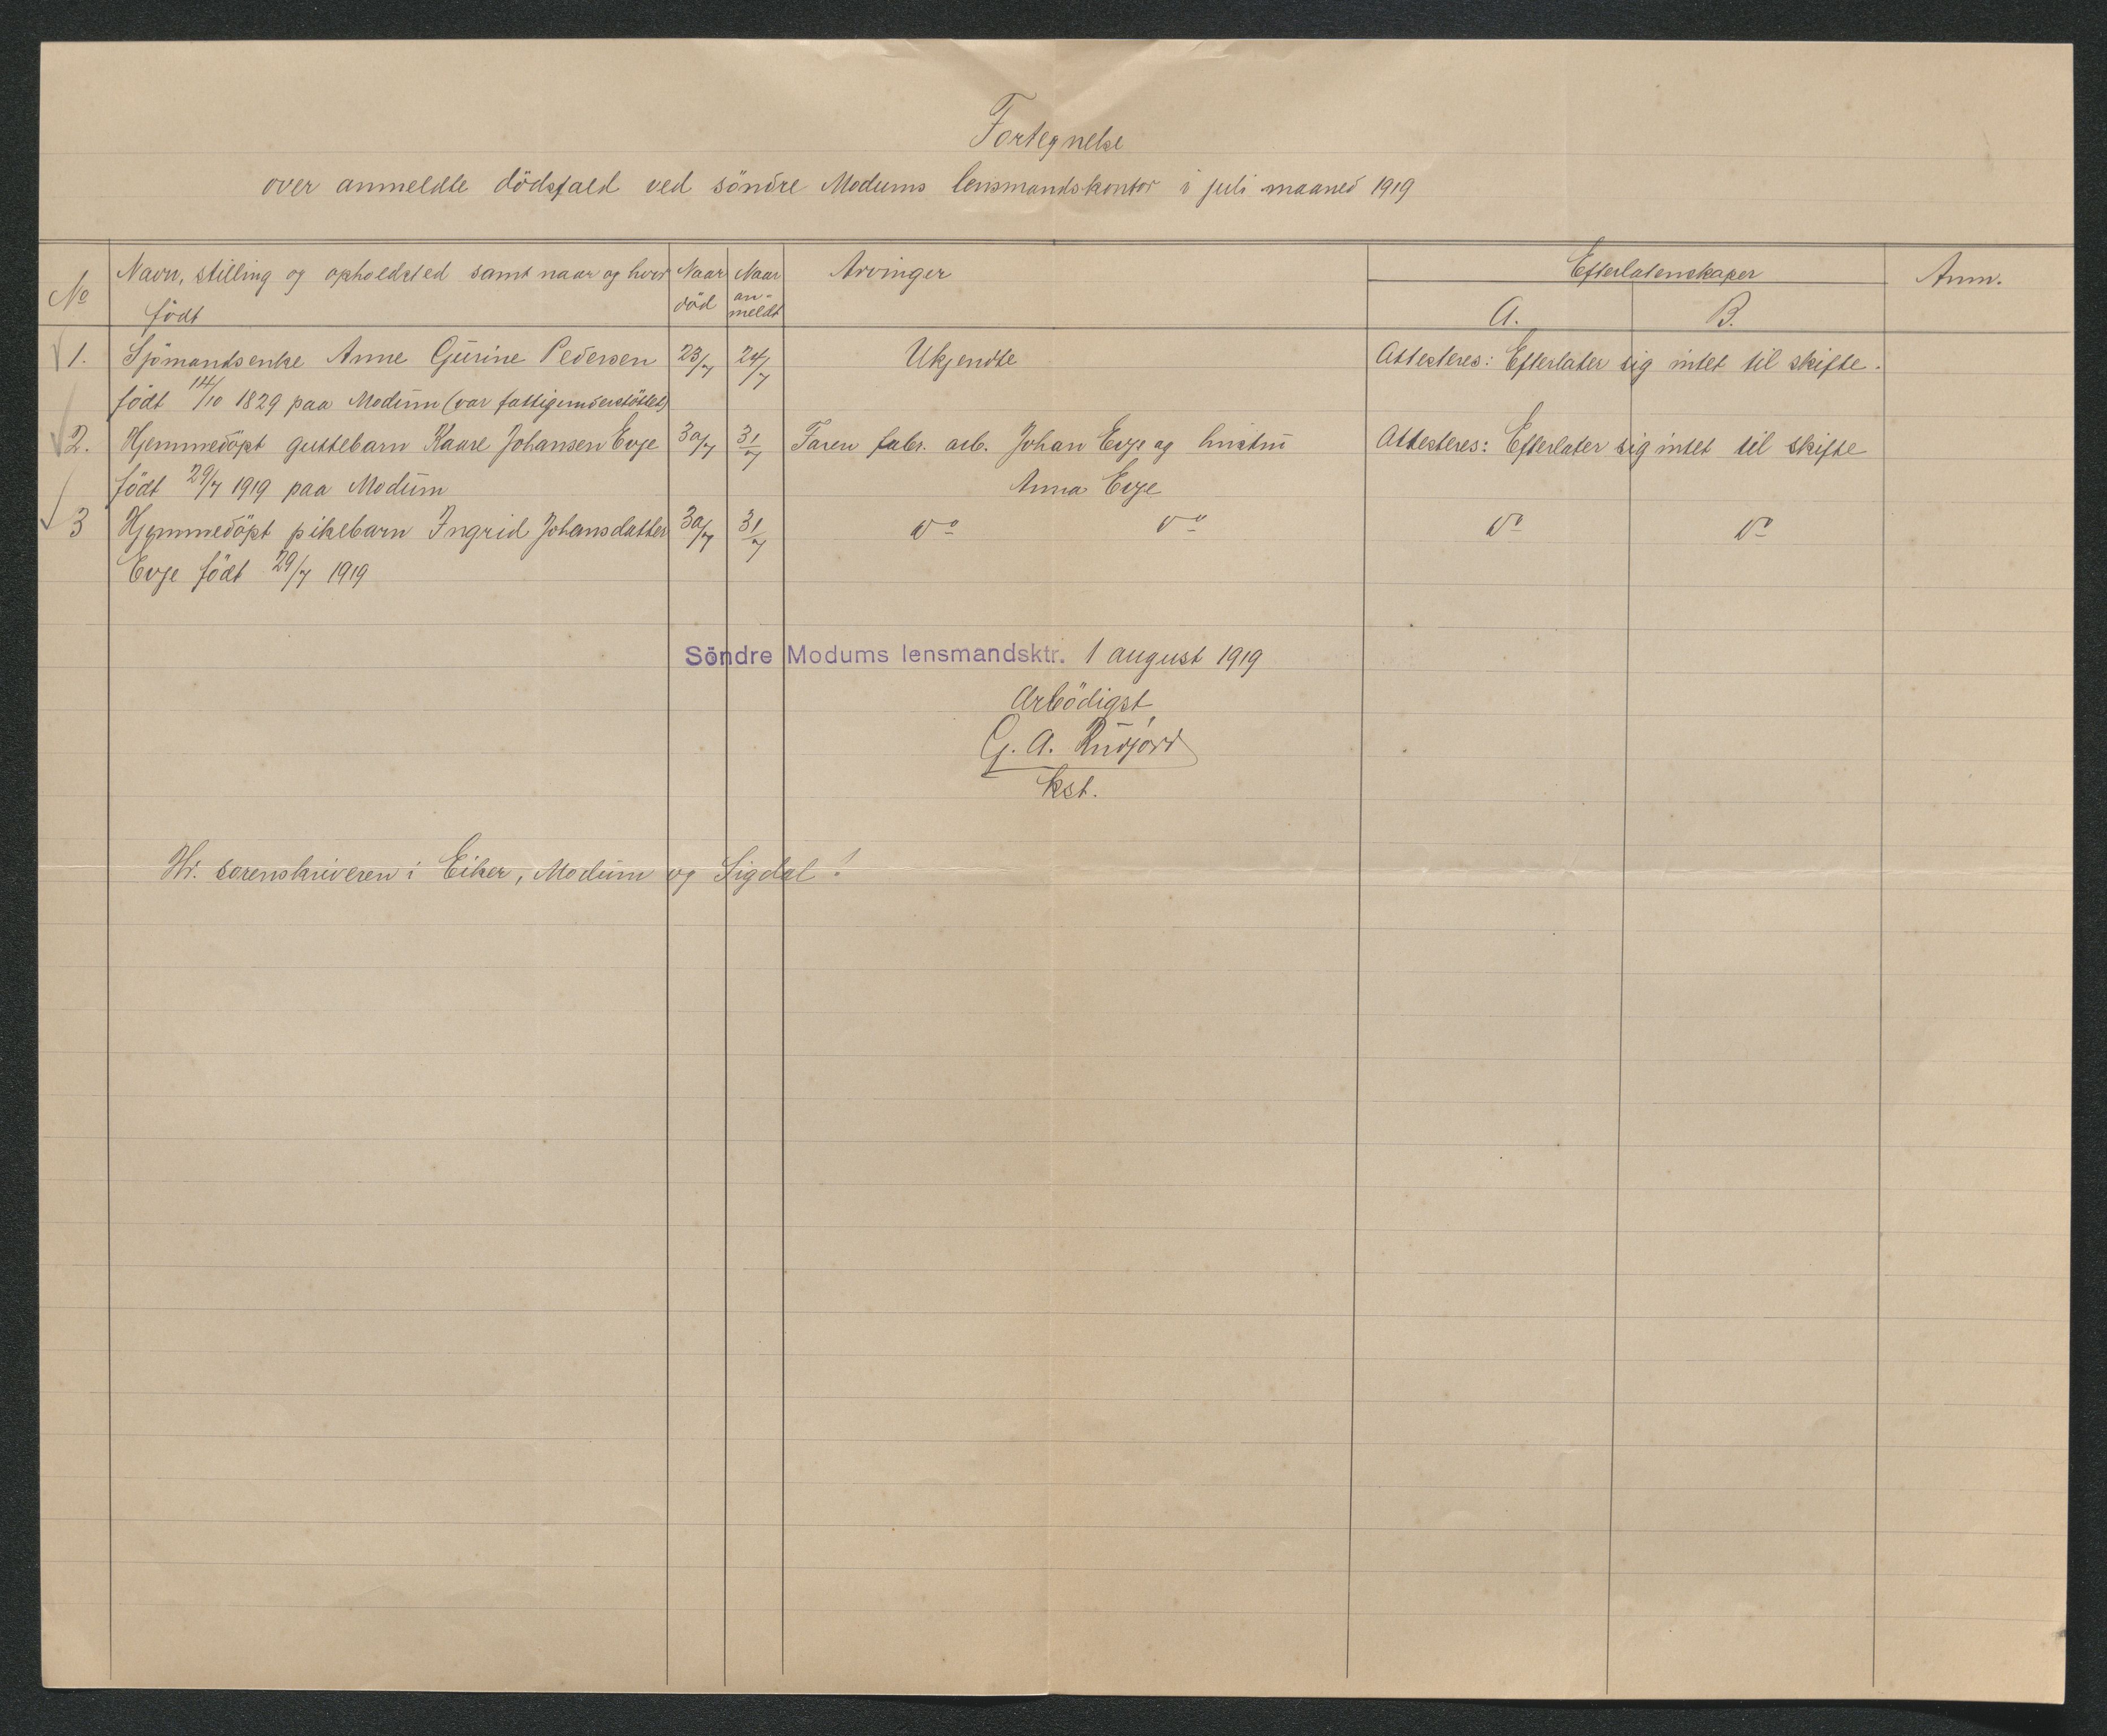 Fortegnelse
over anmeldte dödsfald ved söndre Modums lensmandskontor i juli maaned 1919
No
Navn, stilling og opholdsted samt naar og hvor
födt
Naar
död
Naar
an-
meldt
Arvinger
Efterlatenskaper
A.
B.
Anm.
1. Sjömandsenke Anne Gurine Pedersen 23/7 24/7 Ukjendte Attesteres: Efterlater sig intet til skifte.
födt 14/10 1829 paa Modum (var fattigunderstöttet)
2. Hjemmedöpt guttebarn Kaare Johansen Evje 30/7 31/7 Faren fabr. arb. Johan Evje og hustru Attesteres: Efterlater sig intet til skifte
födt 29/7 1919 paa Modum Anna Evje
3 Hjemmedöpt pikebarn Ingrid Johansdatter 30/7 31/7 do do do do
Evje födt 29/7 1919
Söndre Modums lensmandsktr. 1 august 1919
Arbödigst
G. A. Rudjord
kst.
Hr. sorenskriveren i Eiker, Modum og Sigdal!